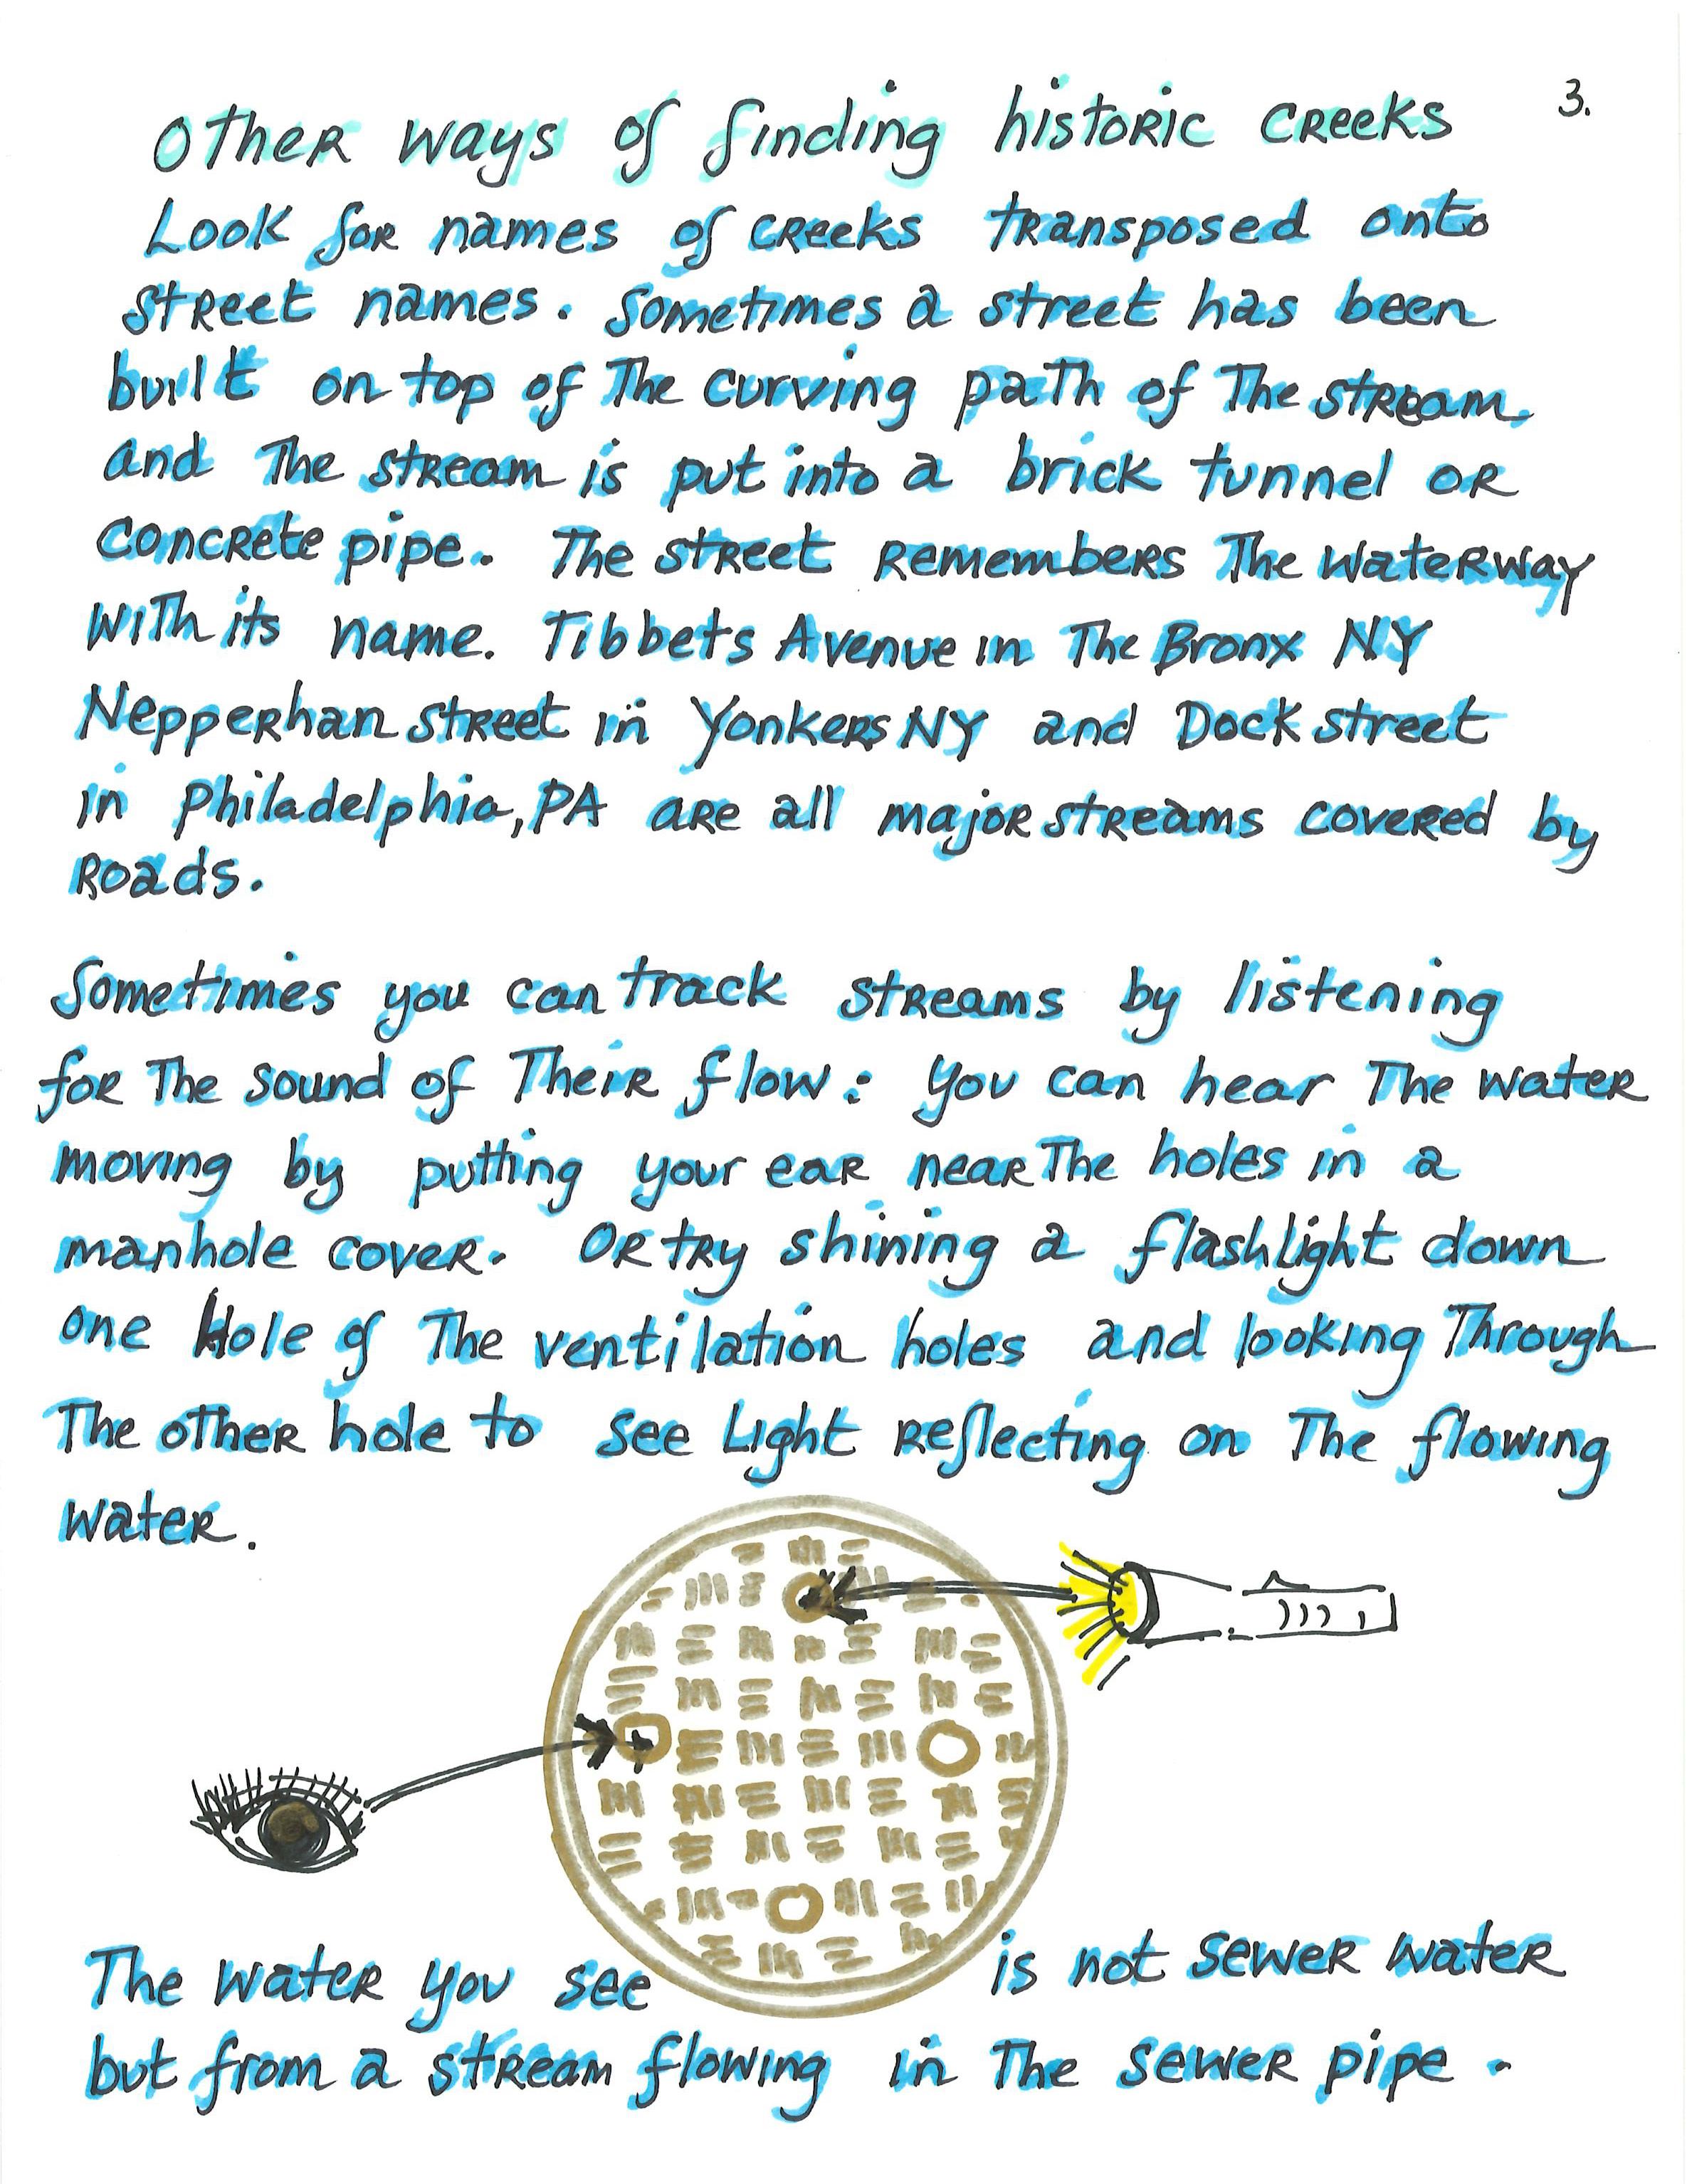 Other ways of finding historic creeks
3.
Look for names of creeks transposed onto
street names. Sometimes a street has been
built on top of The curving path of The stream,
and The stream is put into a brick tunnel or
concrete pipe. The street remembers The waterway
with its name. Tibbets Avenue in The Bronx NY
Nepperhan street in Yonkers NY and Dock street
in Philadelphia, PA are all major streams covered by
Roads.
Sometimes you can track streams by listening
for The sound of Their flow: you can hear The water
moving by putting your ear near The holes in a
manhole cover. Or try shining a flashlight down
one Hole of The ventilation holes and looking Through
The other hole to see Light reflecting on The flowing
water.
The water you see is not sewer water
but from a stream flowing in The sewer pipe.